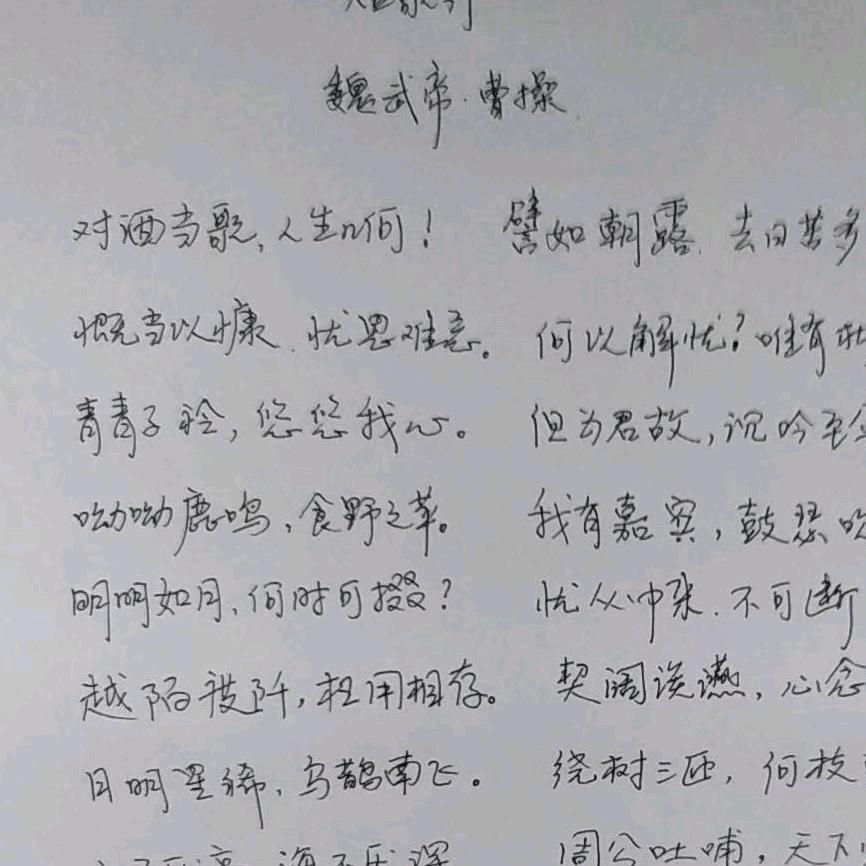 短歌行
魏武帝·曹操
对酒当歌,人生几何! 譬如朝露,去日苦多
慨当以慷,忧思难忘。 何以解忧?唯有杜
青青子衿,悠悠我心。 但为君故,沉吟至今
呦呦鹿鸣,食野之苹。 我有嘉宾,鼓瑟吹
明明如月,何时可掇? 忧从中来,不可断
越陌度阡,枉用相存。 契阔谈讌,心念
月明星稀,乌鹊南飞。 绕树三匝,何枝
海不厌深 周公吐哺,天下